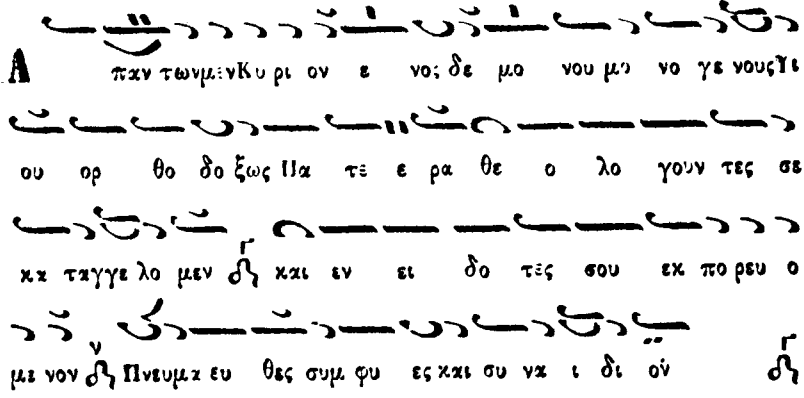 Α παν των μεν Κυ ρι ον ε νος δε μο νου μο νο γε νους Υι
ου ορ θο δο ξως Πα τε ε ρα θε ο λο γουν τες σε
κα ταγγε λο μεν και εν ει δο τες σου εκ πο ρευ ο
με νον Πνευμα ευ θες συμ φυ ες και συ να ι δι ον